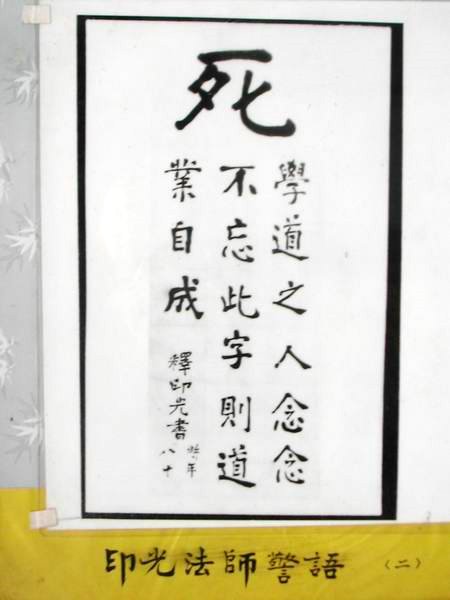 死
學道之人念念
不忘此字則道
業自成
釋印光書
時年
八十
印光法師警語（二）